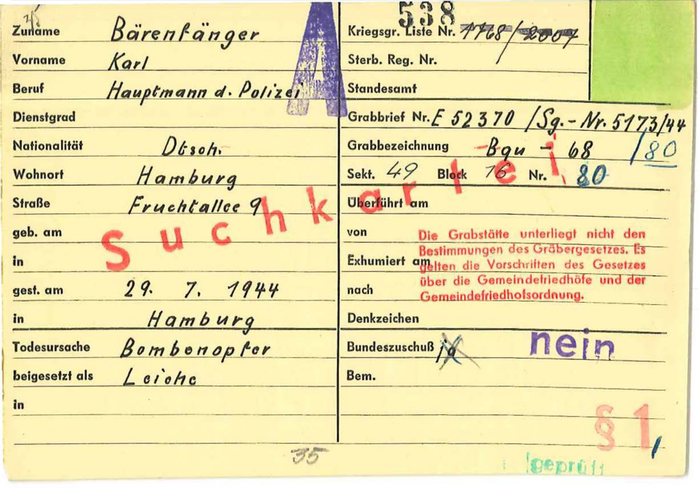 538
Zuname Bärenfänger
Vorname Karl
Beruf Hauptmann d. Polizei
Dienstgrad
Nationalität Dtsch.
Wohnort Hamburg
Straße Fruchtallee 9
geb. am
in
gest. am 29. 7. 1944
in Hamburg
Todesursache Bombenopfer
beigesetzt als Leiche
in
A
Suchkartei
Kriegsgr. Liste Nr. 1768/2001
Sterb. Reg. Nr.
Standesamt
Grabbrief Nr. E 52370 /Sg.-Nr. 5173/44
Grabbezeichnung Bqu - 68 /80
Sekt. 49 Block 16 Nr. 80
Überführt am
von
Exhumiert am
nach
Die Grabstätte unterliegt nicht den
Bestimmungen des Gräbergesetzes. Es
gelten die Vorschriften des Gesetzes
über die Gemeindefriedhöfe und der
Gemeindefriedhofsordnung.
Denkzeichen
Bundeszuschuß ja nein
Bem.
§ 1,
35
geprüft